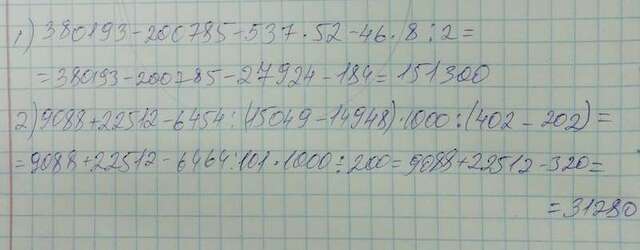 1) 380193-200785-537·52-46·8:2=
=380193-200785-27924-184=151300
2) 9088+22512-6454:(15049-14948)·1000:(402-202)=
=9088+22512-6464:101·1000:200=9088+22512-320=
=31280